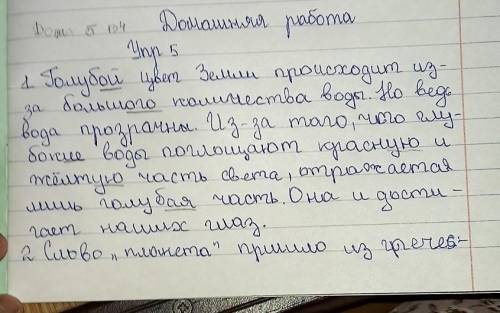 Домашняя работа
Упр 5
1 Голубой цвет Земли происходит из-
за большого количества воды. Но ведь
вода прозрачны. Из-за того, что глу-
бокие воды поглощают красную и
жёлтую часть света, отражается
лишь голубая часть. Она и дости-
гает наших глаз.
2 Слово „планета" пришло из гречес-